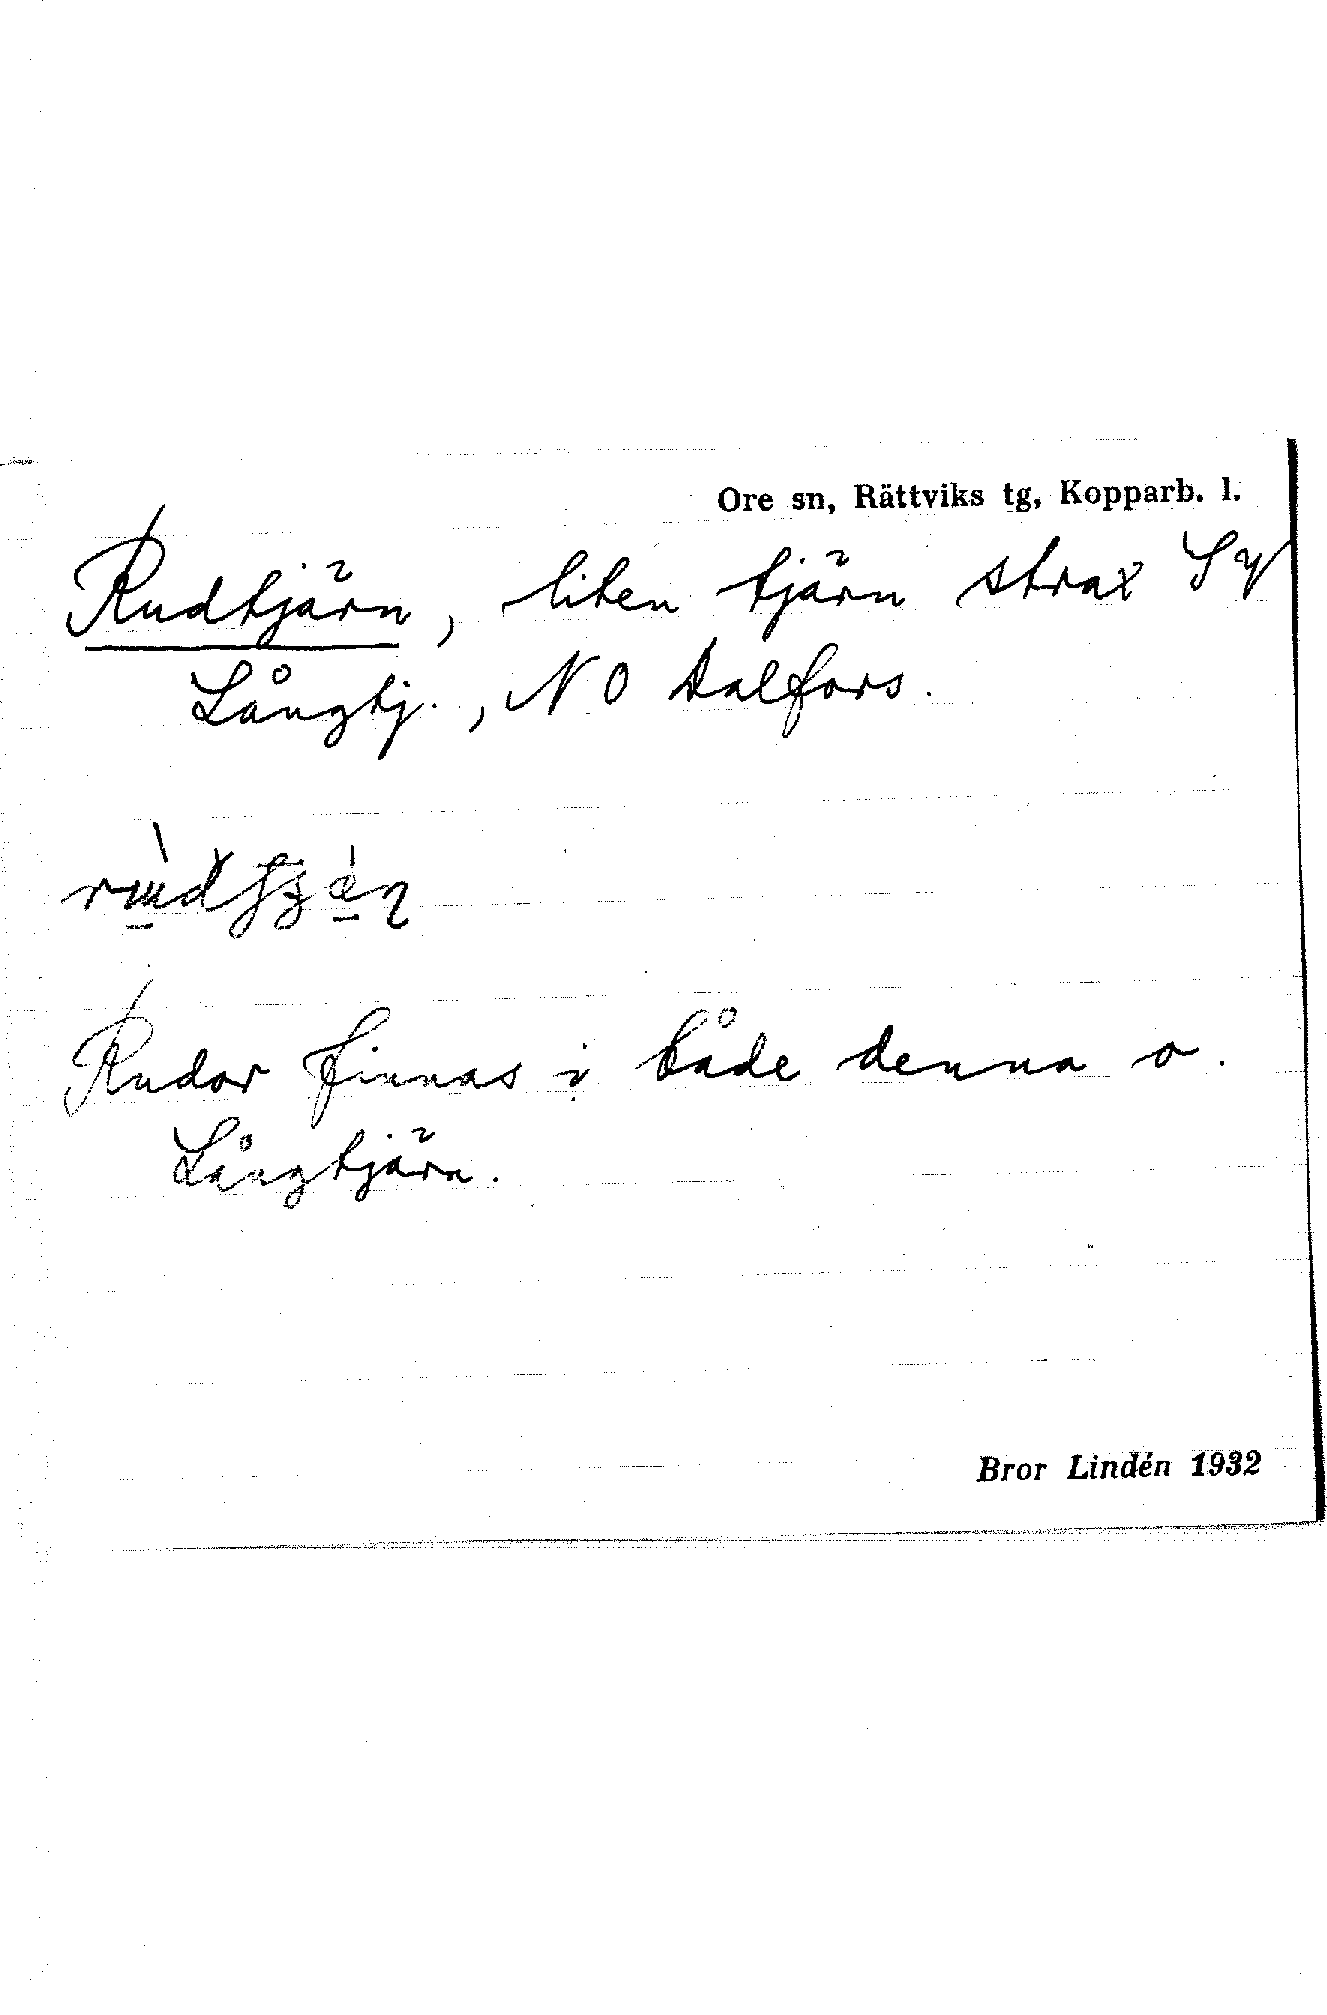 Ore sn, Rättviks tg, Kopparb. l.
Rudtjärn, liten tjärn strax SV
Långtj., NO Dalfors.
Rudor finnas i både denna o.
Långtjärn.
Bror Lindén 1932